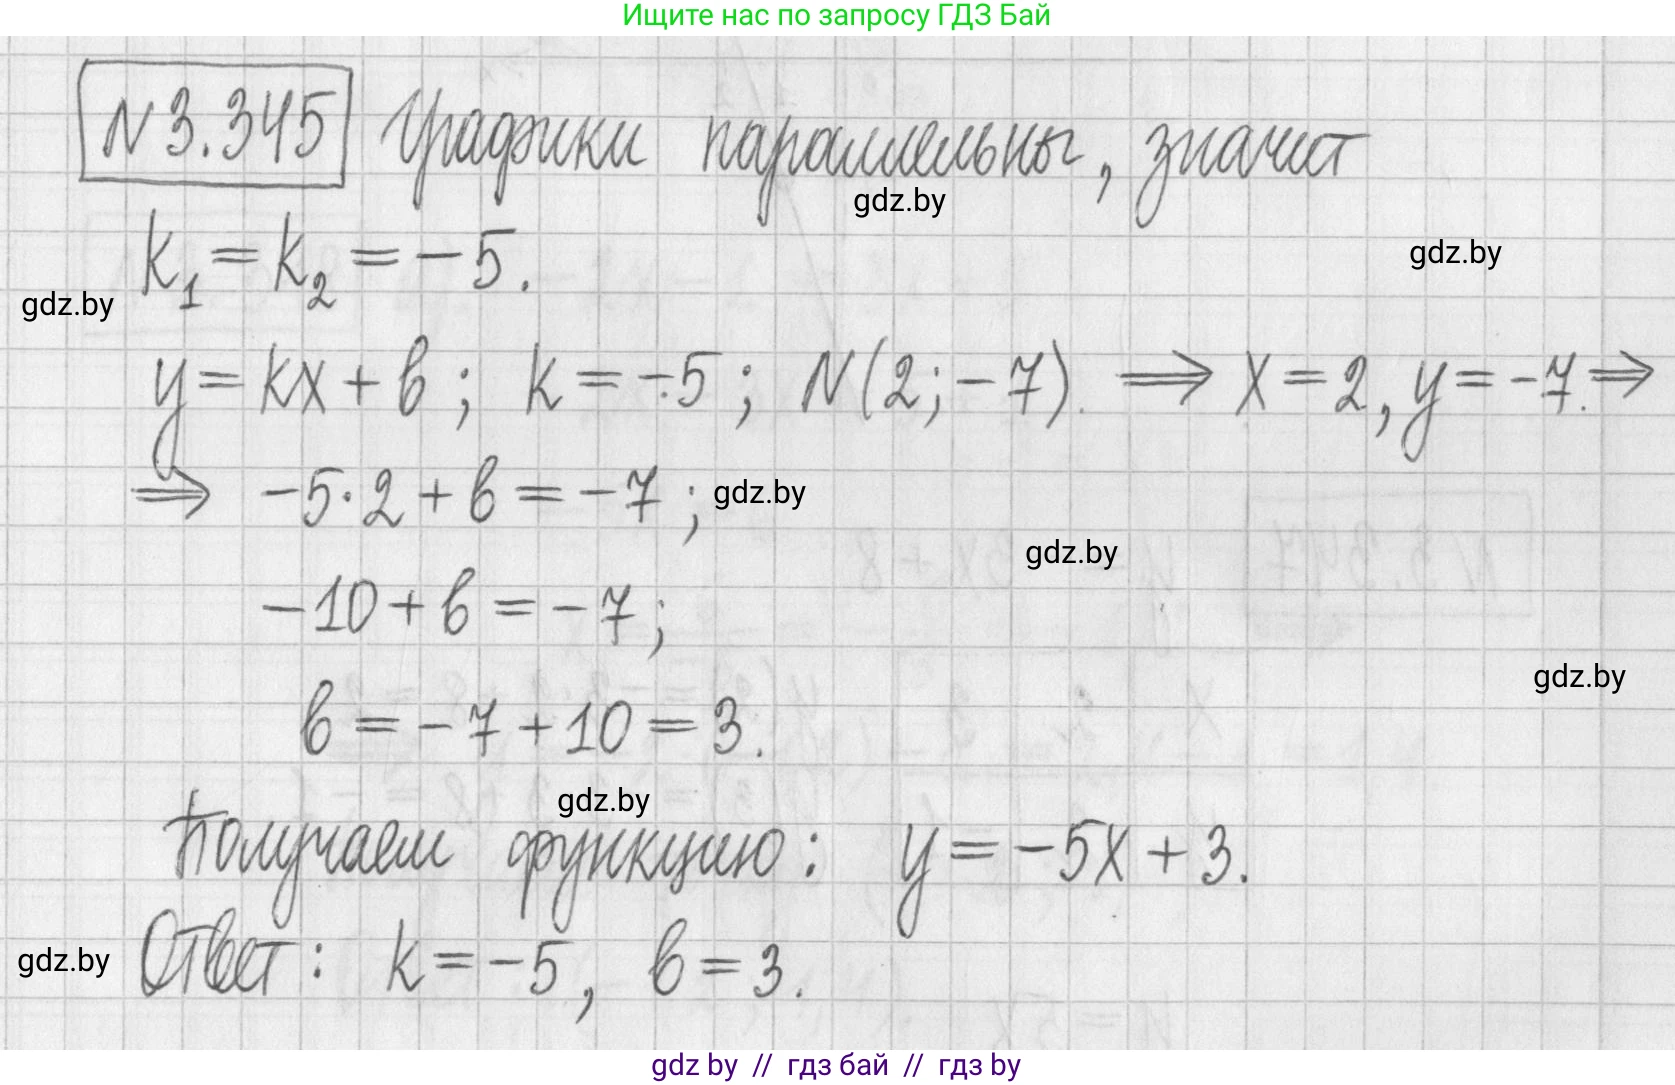 Ищите нас по запросу ГДЗ Бай
N 3.345 Графики параллельны, значит
gdz.by
k₁ = k₂ = -5.
gdz.by
gdz.by
y = kx + b; k = -5; N(2; -7). ⟹ x = 2, y = -7. ⟹
⟹ -5·2 + b = -7;
gdz.by
gdz.by
-10 + b = -7;
gdz.by
b = -7 + 10 = 3.
gdz.by
Получаем функцию: y = -5x + 3.
gdz.by
Ответ: k = -5, b = 3.
gdz by // гдз бай // гдз by